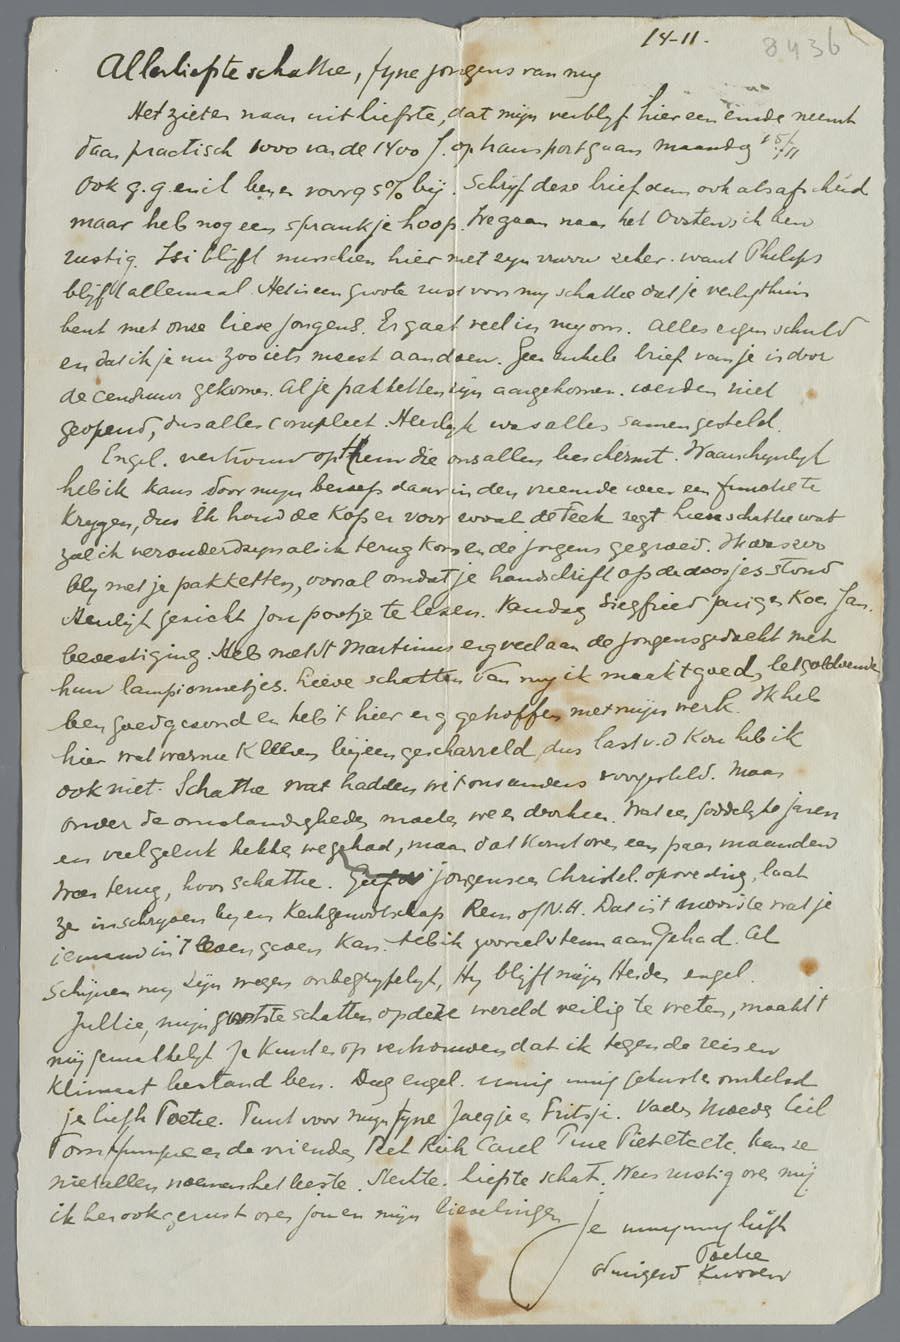 14-11.
8436
Allerliefste schattie, fyne jongens van my
Het ziet er naar uit liefste, dat mijn verblyf hier een einde neemt
daar practisch 1000 van de 1400 J. op transport gaan maandag 15/11
Ook g. g. en ik ben er voor 95% bij. Schrijf deze brief dan ook als afscheid
maar heb nog een sprankje hoop. We gaan naar het Oosten, ik ben
rustig. Isi blijft misschien hier met zyn vrouw zeker. want Philips
blijft allemaal. Het is een groote rust voor my schattie dat je veilig thuis
bent met onze lieve jongens. Er gaat veel in my om. Alles eigen schuld
en dat ik je nu zoo iets moest aandoen. Geen enkele brief van je is door
de censuur gekomen. Al je pakketten zijn aangekomen. werden niet
geopend, dus alles compleet. Heerlyk was alles samengesteld.
Engel. vertrouw op Hem die ons allen beschermt. Waarschynlyk
heb ik kans door mijn beroep daar in den vreemde weer een functie te
krygen, dus ik houd de kop er voor zooal de Feek zegt Lieve schattie wat
zal ik veranderd zyn als ik terug kom en de jongens gegroeid. Ik was zoo
bly met je pakketten, vooral omdat je handschrift op de doosjes stond
Heerlijk gezicht jou pootje te lezen. Vandaag Siegfried jarig en Koe Jan.
bevestiging. Heb met St Martinus erg veel aan de jongens gedacht met
hun lampionnetjes. Lieve schatten van my ik maak t goed,
ben goed gezond en heb 't hier erg getroffen met mijn werk. Ik heb
hier wat warme kleeren bijeengescharreld, dus last v.d kou heb ik
ook niet. Schattie wat hadden wij t ons anders voorgesteld. Maar
onder de omstandigheden moeten we er doorheen. Wat een goddelyke jaren
en veel geluk hebben we gehad, maar dat komt over een paar maanden
weer terug, hoor schattie. Geef de jongens een Christel. opvoeding, laat
ze inschryven by een Kerkgenootschap Rem of N.H. Dat is t mooiste wat je
iemand in 't leven geven kan. Heb ik zooveel steun aan gehad. Al
schijnen my Zijn wegen onbegrypelyk, Hy blijft mijn Herder engel.
Jullie, mijn grootste schatten op deze wereld veilig te weten, maakt t
mij gemakkelyk Je kunt er op vertrouwen dat ik tegen de reis en
klimaat bestand ben. Dag engel. innig innig gekust en omhelsd
je liefh Toetie. Kust voor mijn fyne Jaapje en Fritsje. Vader Moeder Ciel
Tom en de vrienden Piet Riek Carel Tine Piet etc etc. kan ze
niet allen noemen het beste. Sterkte. liefste schat. Wees rustig over mij
ik ben ook gerust over jou en mijn lievelingen
Je innig innig liefh
Toetie